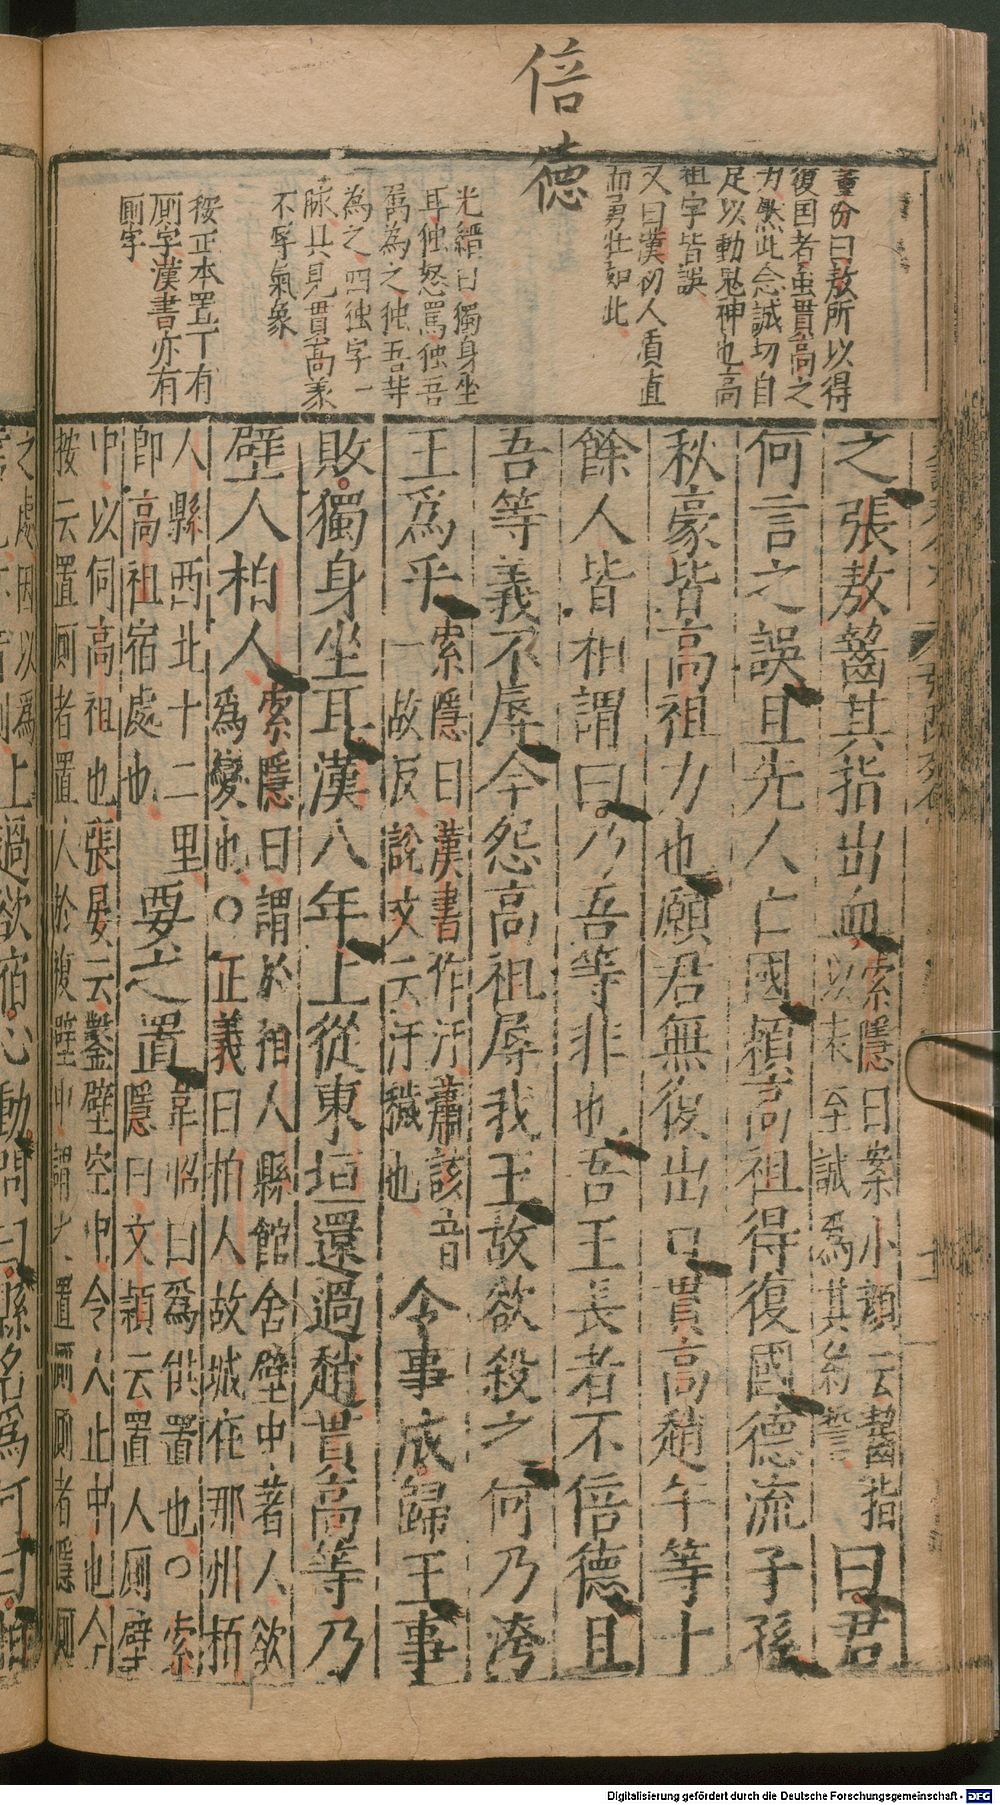 倍德
董份曰敖所以得
復国者虽貫高之
力㷊此念誠切自
足以動鬼神也高
祖字皆誤
又曰漢初人質直
而勇壮如此
光縉曰獨身坐
耳独怒罵独吾
為之独吾
為之四独字一
脉具見貫高
不辱氣象
按正本置下有
厕字漢書亦有
厕字
之張敖齧其指出血索隱曰案小顔云齧指
以表至誠爲其約誓曰君
何言之誤且先人亡國頼高祖得復國德流子孫
秋豪皆高祖力也願君無復出口貫高趙午等十
餘人皆相謂曰乃吾等非也吾王長者不倍德且
吾等義不辱今怨高祖辱我王故欲殺之何乃洿
王爲乎索隱曰漢書作汙蕭該音
一故反說文云汙穢也令事成歸王事
敗獨身坐耳漢八年上從東垣還過趙貫高等乃
壁人柏人索隱曰謂於柏人縣館舍壁中著人欲
爲變也○正義曰柏人故城在邢州柏
人縣西北十二里
即高祖宿處也要之置韋昭曰爲供置也○索
隱曰文穎云置人厕壁
中以伺高祖也張晏云鑿壁空中令人止中也今
按云置厕者置人於複壁中謂之置厕厕者隱厕
之處因以爲
上過欲宿心動問曰縣名爲何曰柏
Digitalisierung gefördert durch die Deutsche Forschungsgemeinschaft - DFG